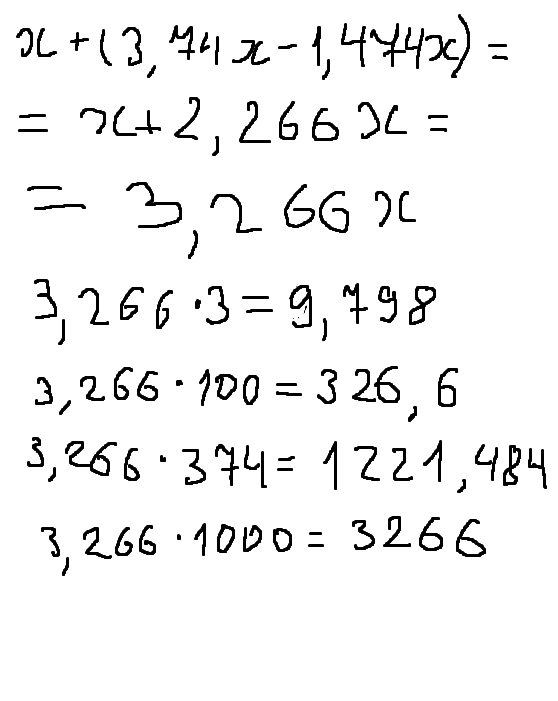 x+(3,74x-1,474x)=
= x+2,266x=
= 3,266x
3,266·3=9,798
3,266·100=326,6
3,266·374=1221,484
3,266·1000=3266